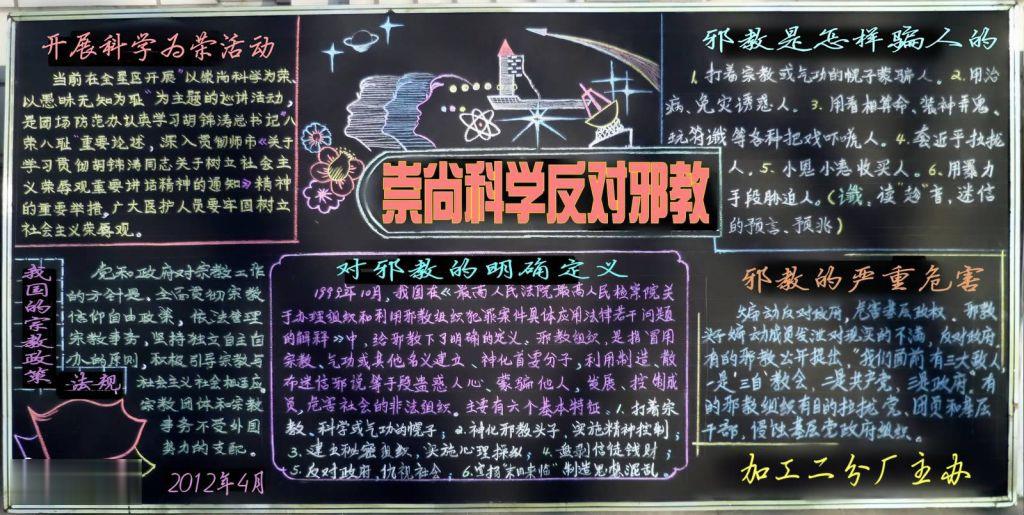 开展科学为荣活动
当前在全星区开展"以崇尚科学为荣、
以愚昧无知为耻"为主题的巡讲活动,
是团场防范办认真学习胡锦涛总书记"八
荣八耻"重要论述,深入贯彻师市《关于
学习贯彻胡锦涛同志关于树立社会主
义荣辱观重要讲话精神的通知》精神
的重要举措,广大医护人员要牢固树立
社会主义荣辱观。
崇尚科学反对邪教
邪教是怎样骗人的
1.打着宗教或气功的幌子蒙骗人。2.用治
病、免灾诱惑人。3.用看相算命、装神弄鬼、
玩符谶等各种把戏吓唬人。4.套近乎拉拢
人。5.小恩小惠收买人。6.用暴力
手段胁迫人。(谶,读"趁"音,迷信
的预言、预兆)
我国的宗教政策
法规
党和政府对宗教工作
的方针是、全面贯彻宗教
信仰自由政策,依法管理
宗教事务,坚持独立自主自
办的原则,积极引导宗教与
社会主义社会相适应,
宗教团体和宗教
事务不受外国
势力的支配。
2012年4月
对邪教的明确定义
1999年10月,我国在《最高人民法院最高人民检察院关
于办理组织和利用邪教组织犯罪案件具体应用法律若干问题
的解释》中,给邪教下了明确的定义、邪教组织、是指冒用
宗教、气功或其他名义建立、神化首要分子,利用制造、散
布迷信邪说等手段蛊惑人心、蒙骗他人,发展、控制成
员,危害社会的非法组织。主要有六个基本特征、1.打着宗
教、科学或气功的幌子;2.神化邪教头子,实施精神控制;
3.建立秘密组织,实施心理操纵;4.盘剥信徒钱财;
5.反对政府,仇视社会;6.宣扬"末日来临"制造思想混乱。
邪教的严重危害
煽动反对政府,危害基层政权、邪教
头子煽动成员发泄对现实的不满,反对政府,
有的邪教公开提出,"我们面前有三大敌人,
一是三自教会、二是共产党、三是政府"有
的邪教组织有目的拉拢党、团员和基层
干部,侵蚀基层党政府组织。
加工二分厂主办